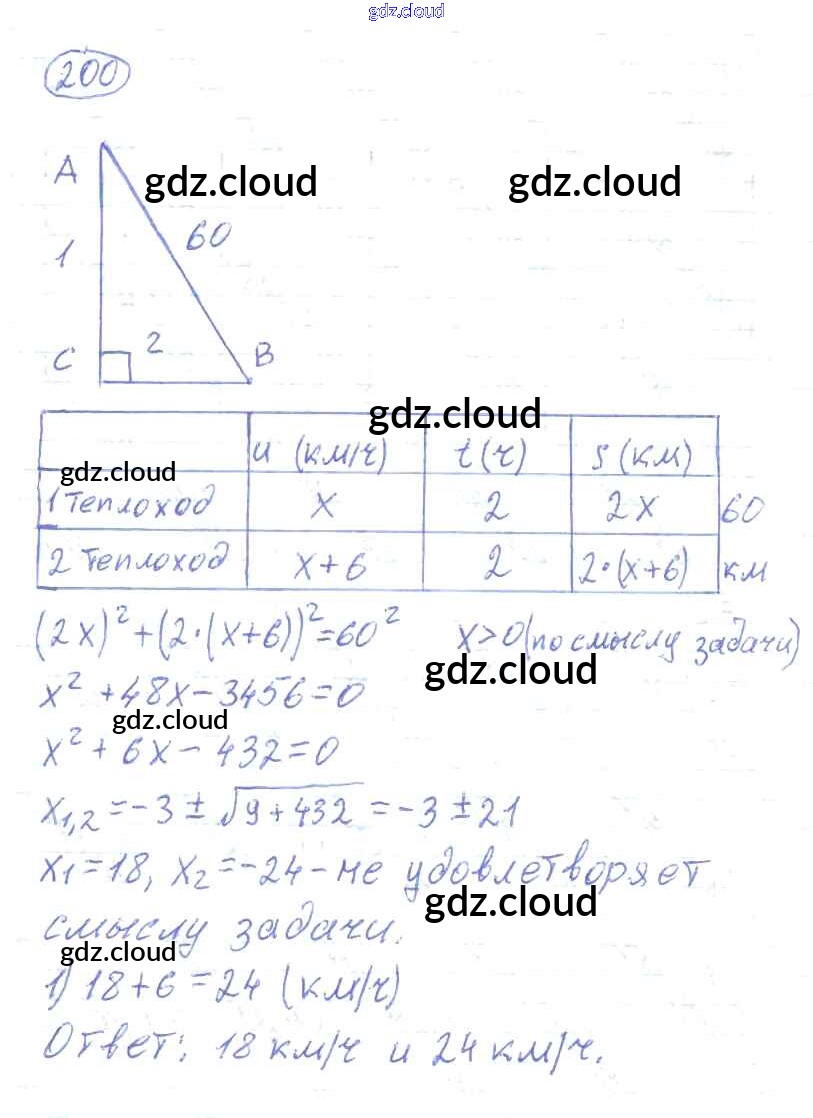 gdz.cloud
200
A gdz.cloud gdz.cloud
60
1
2
C B
gdz.cloud
u (км/ч) t(ч) s(км)
gdz.cloud
1 теплоход x 2 2x 60
2 теплоход x+6 2 2·(x+6) км
(2x)²+(2·(x+6))²=60² x>0(по смыслу задачи)
gdz.cloud
x²+48x-3456=0
gdz.cloud
x²+6x-432=0
x1,2=-3±√9+432=-3±21
x1=18, x2=-24-не удовлетворяет
gdz.cloud
смыслу задачи.
gdz.cloud
1) 18+6=24 (км/ч)
Ответ: 18 км/ч и 24 км/ч.